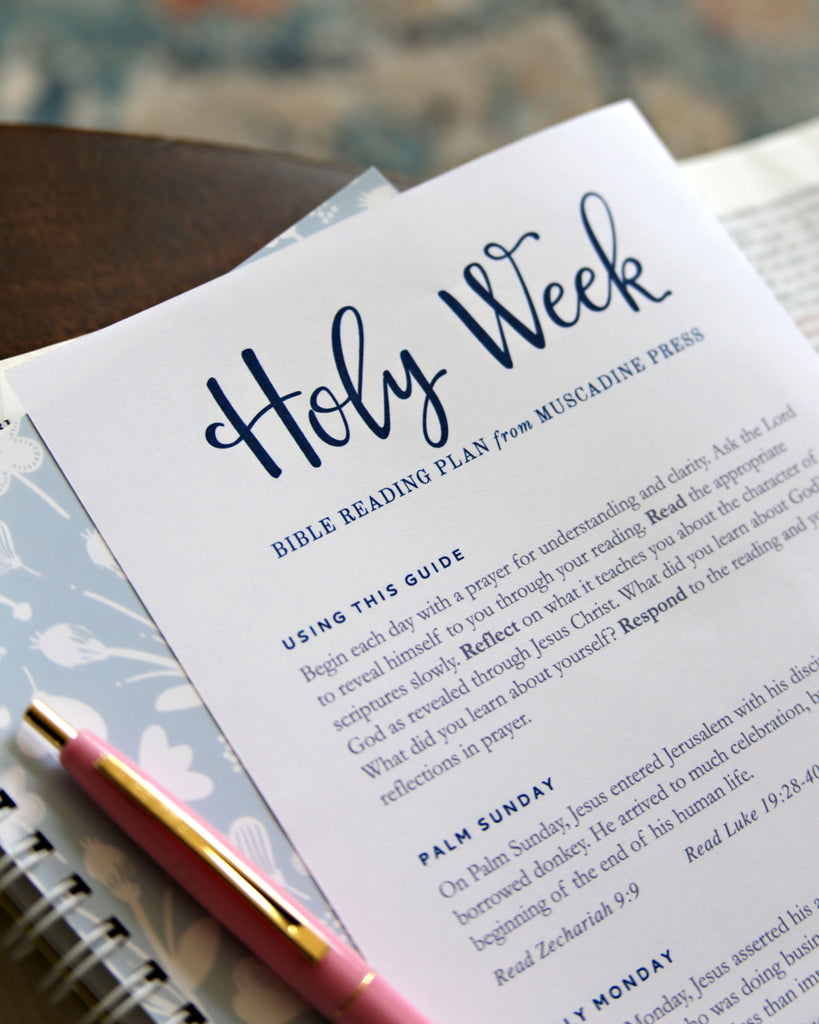 Holy Week
BIBLE READING PLAN from MUSCADINE PRESS
USING THIS GUIDE
Begin each day with a prayer for understanding and clarity. Ask the Lord
to reveal himself to you through your reading. Read the appropriate
scriptures slowly. Reflect on what it teaches you about the character of
God as revealed through Jesus Christ. What did you learn about God
What did you learn about yourself? Respond to the reading and
reflections in prayer.
PALM SUNDAY
On Palm Sunday, Jesus entered Jerusalem with his
borrowed donkey. He arrived to much celebration,
beginning of the end of his human life.
Read Zechariah 9:9 Read Luke 19:28-40
LY MONDAY
Monday, Jesus asserted his
who was doing
less than